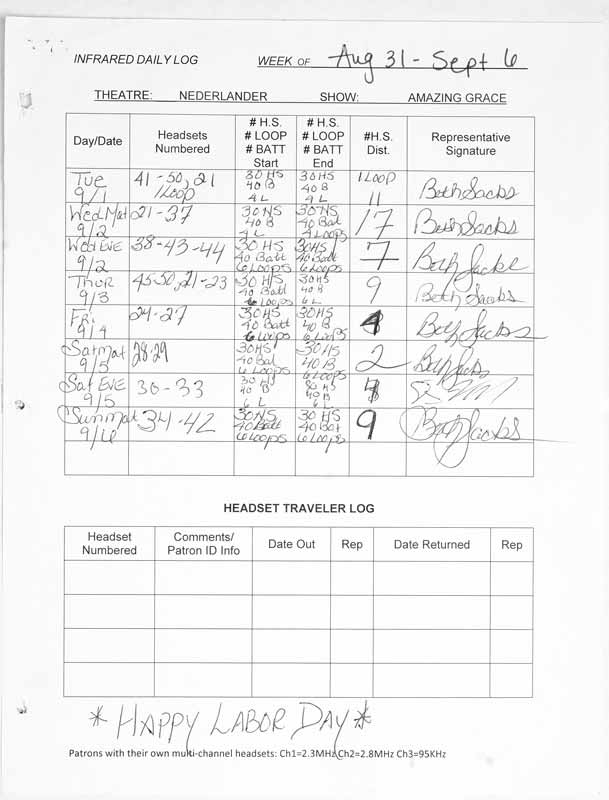 INFRARED DAILY LOG WEEK OF Aug 31 - Sept 6
THEATRE: NEDERLANDER SHOW: AMAZING GRACE
Day/Date Headsets Numbered # H.S. # LOOP # BATT Start # H.S. # LOOP # BATT End #H.S. Dist. Representative Signature
Tue 9/1 41-50, 21 1 LOOP 30 HS 40 B 4 L 30 HS 40 B 4 L 1 LOOP 11 Beth Jacks
Wed Mat 9/2 21-37 30 HS 40 B 4 L 30 HS 40 Bat 4 Loops 17 Beth Jacks
Wed EVE 9/2 38-43-44 30 HS 40 Batt 6 Loops 30 HS 40 Batt 6 Loops 7 Beth Jacks
Thur 9/3 45-50, 21-23 30 HS 40 Batt 6 Loops 30 HS 40 B 6 L 9 Beth Jacks
Fri 9/4 24-27 30 HS 40 Batt 6 Loops 30 HS 40 B 6 Loops 4 Beth Jacks
Sat Mat 9/5 28-29 30 HS 40 Bat 6 Loops 30 HS 40 B 6 Loops 2 Beth Jacks
Sat EVE 9/5 30-33 30 HS 40 B 6 L 30 HS 40 B 6 L 4
Sun Mat 9/6 34-42 30 HS 40 Batt 6 Loops 30 HS 40 Bat 6 Loops 9 Beth Jacks
HEADSET TRAVELER LOG
Headset Numbered Comments/ Patron ID Info Date Out Rep Date Returned Rep
* HAPPY LABOR DAY *
Patrons with their own multi-channel headsets: Ch1=2.3MHz Ch2=2.8MHz Ch3=95KHz